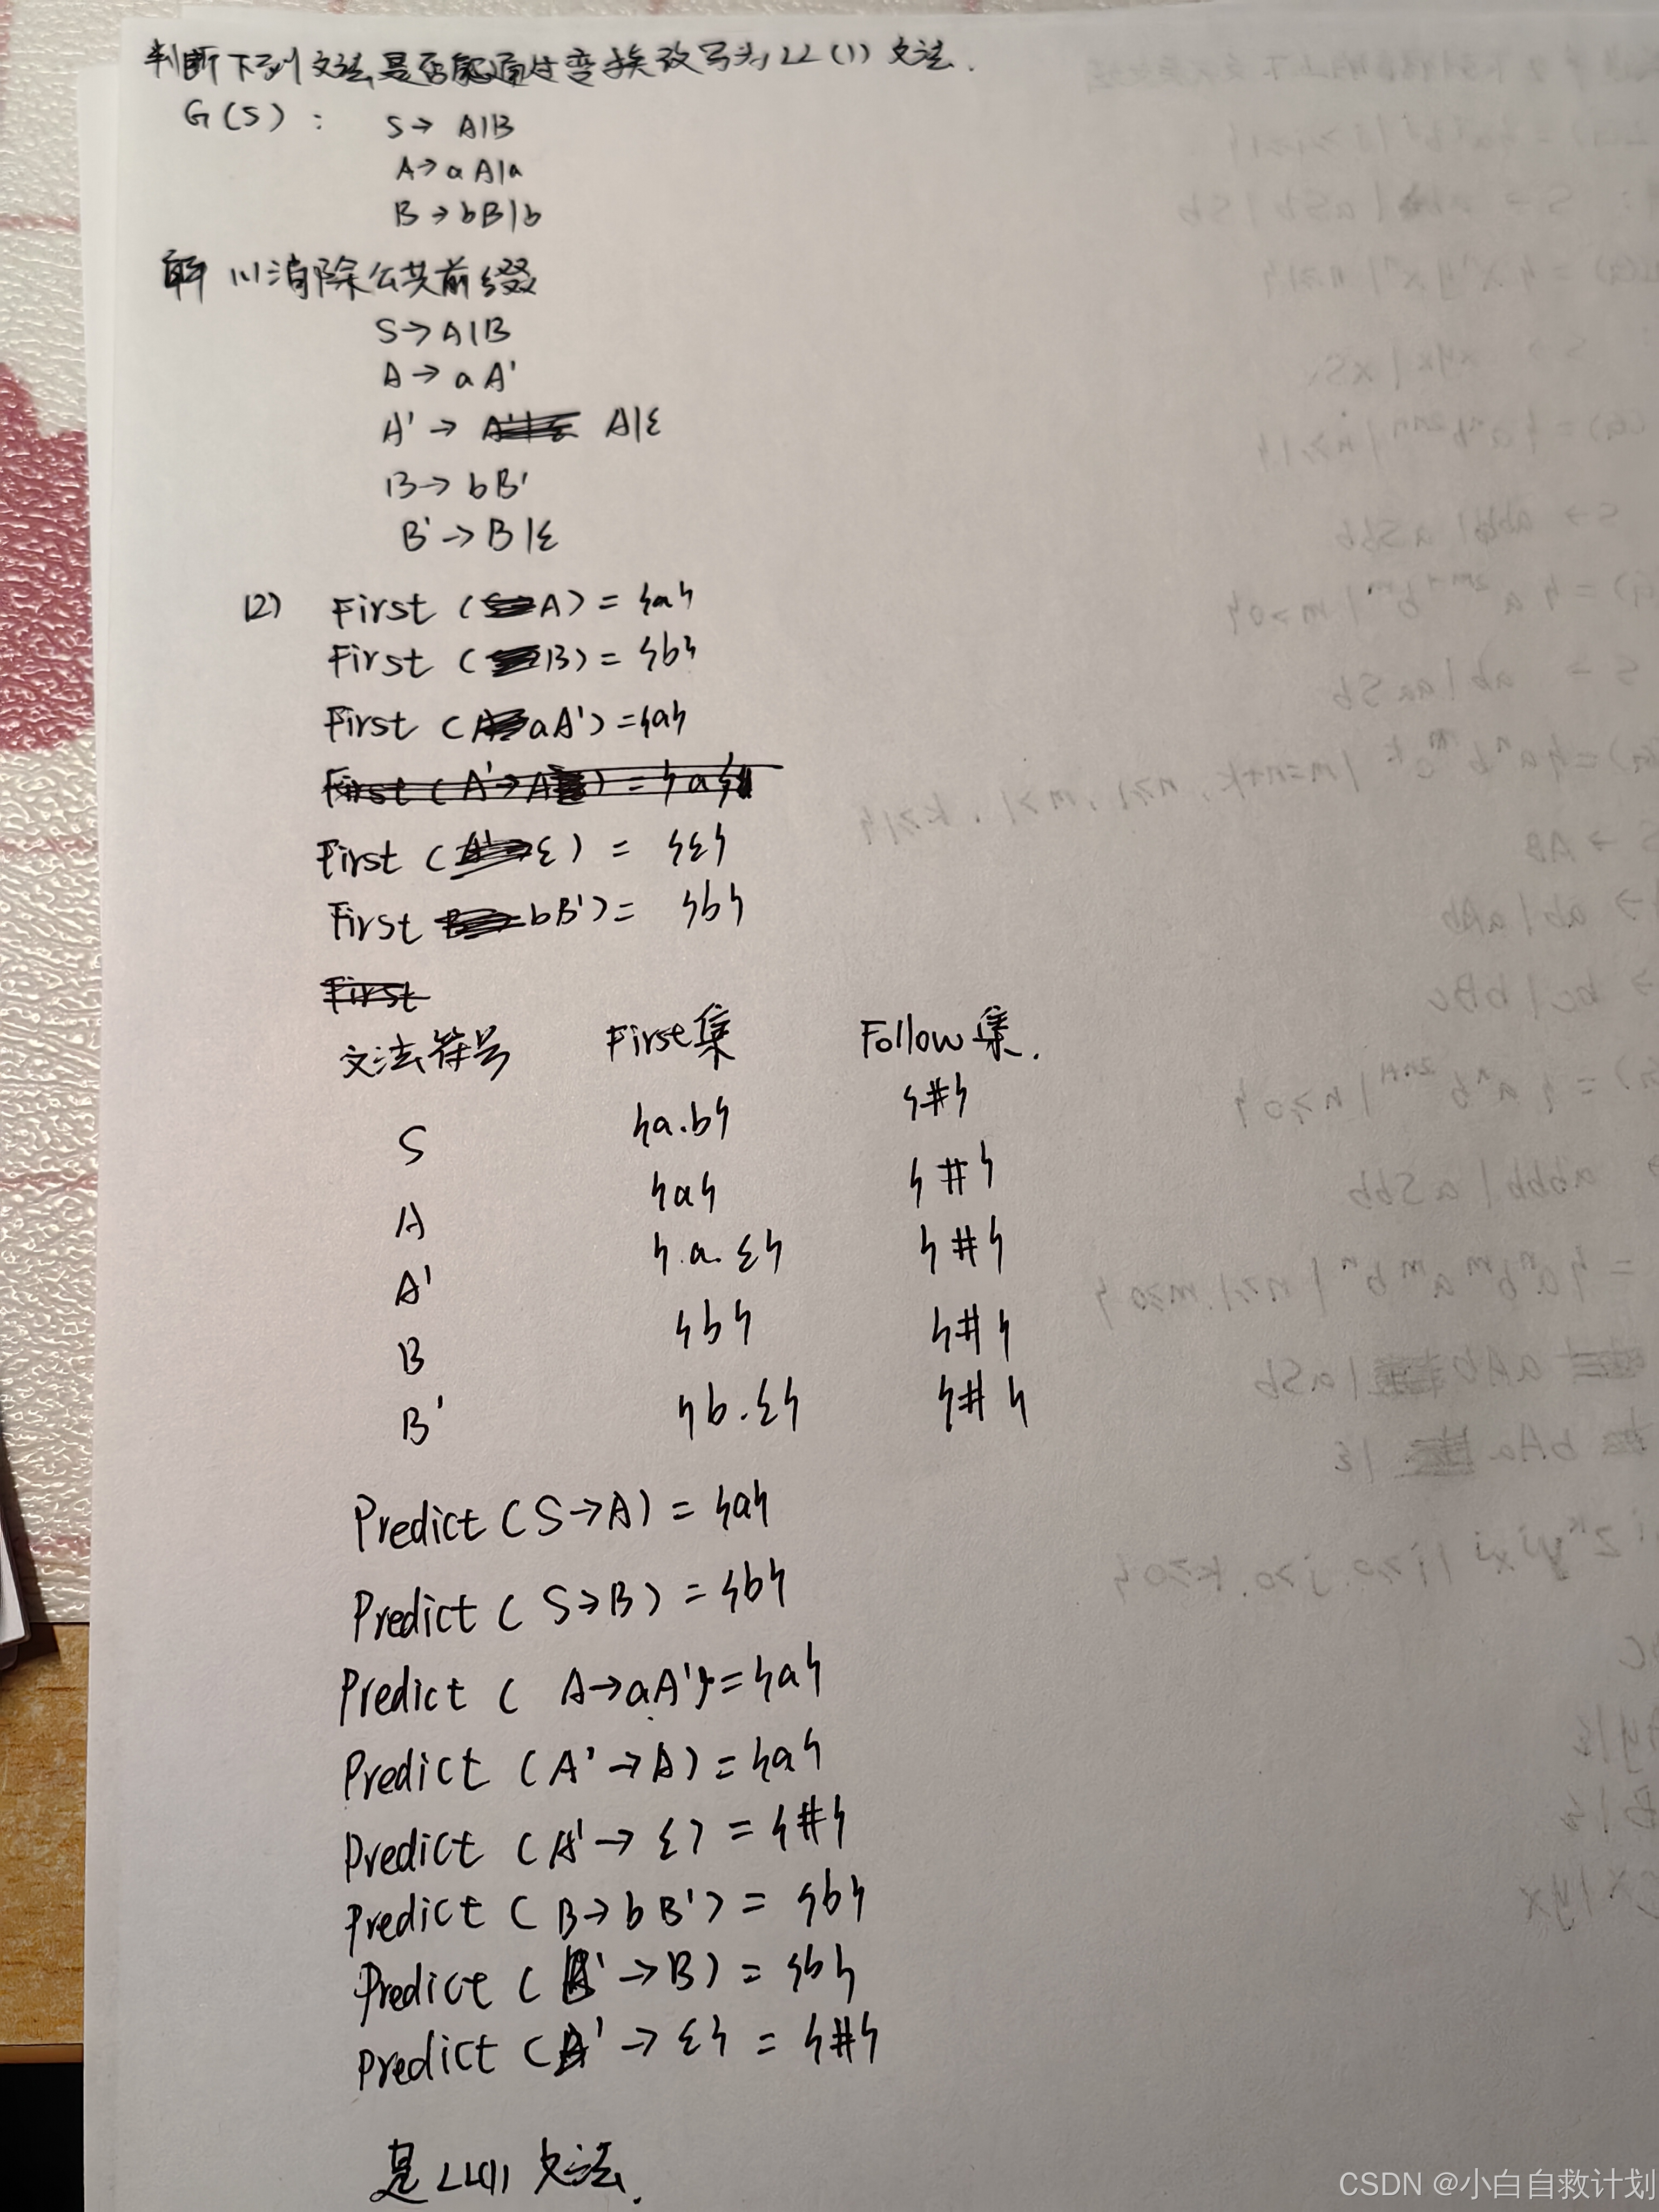 判断下列文法是否能通过变换改写为LL(1)文法.
G(S): S→ A|B
A→aA|a
B→bB|b
解 (1)消除公共前缀
S→A|B
A→aA'
A'→ A|ε
B→bB'
B'→B|ε
(2) First(A)={a}
First(B)={b}
First(aA')={a}
First(ε)={ε}
First bB')={b}
First
文法符号 First集 Follow集.
S {a.b} {#}
A {a} {#}
A' {.a.ε} {#}
B {b} {#}
B' {b.ε} {#}
Predict(S→A)={a}
Predict(S→B)={b}
Predict(A→aA')={a}
Predict(A'→A)={a}
Predict(A'→ε)={#}
Predict(B→bB')={b}
Predict(B'→B)={b}
Predict(B'→ε}={#}
是LL(1)文法.
CSDN @小白自救计划